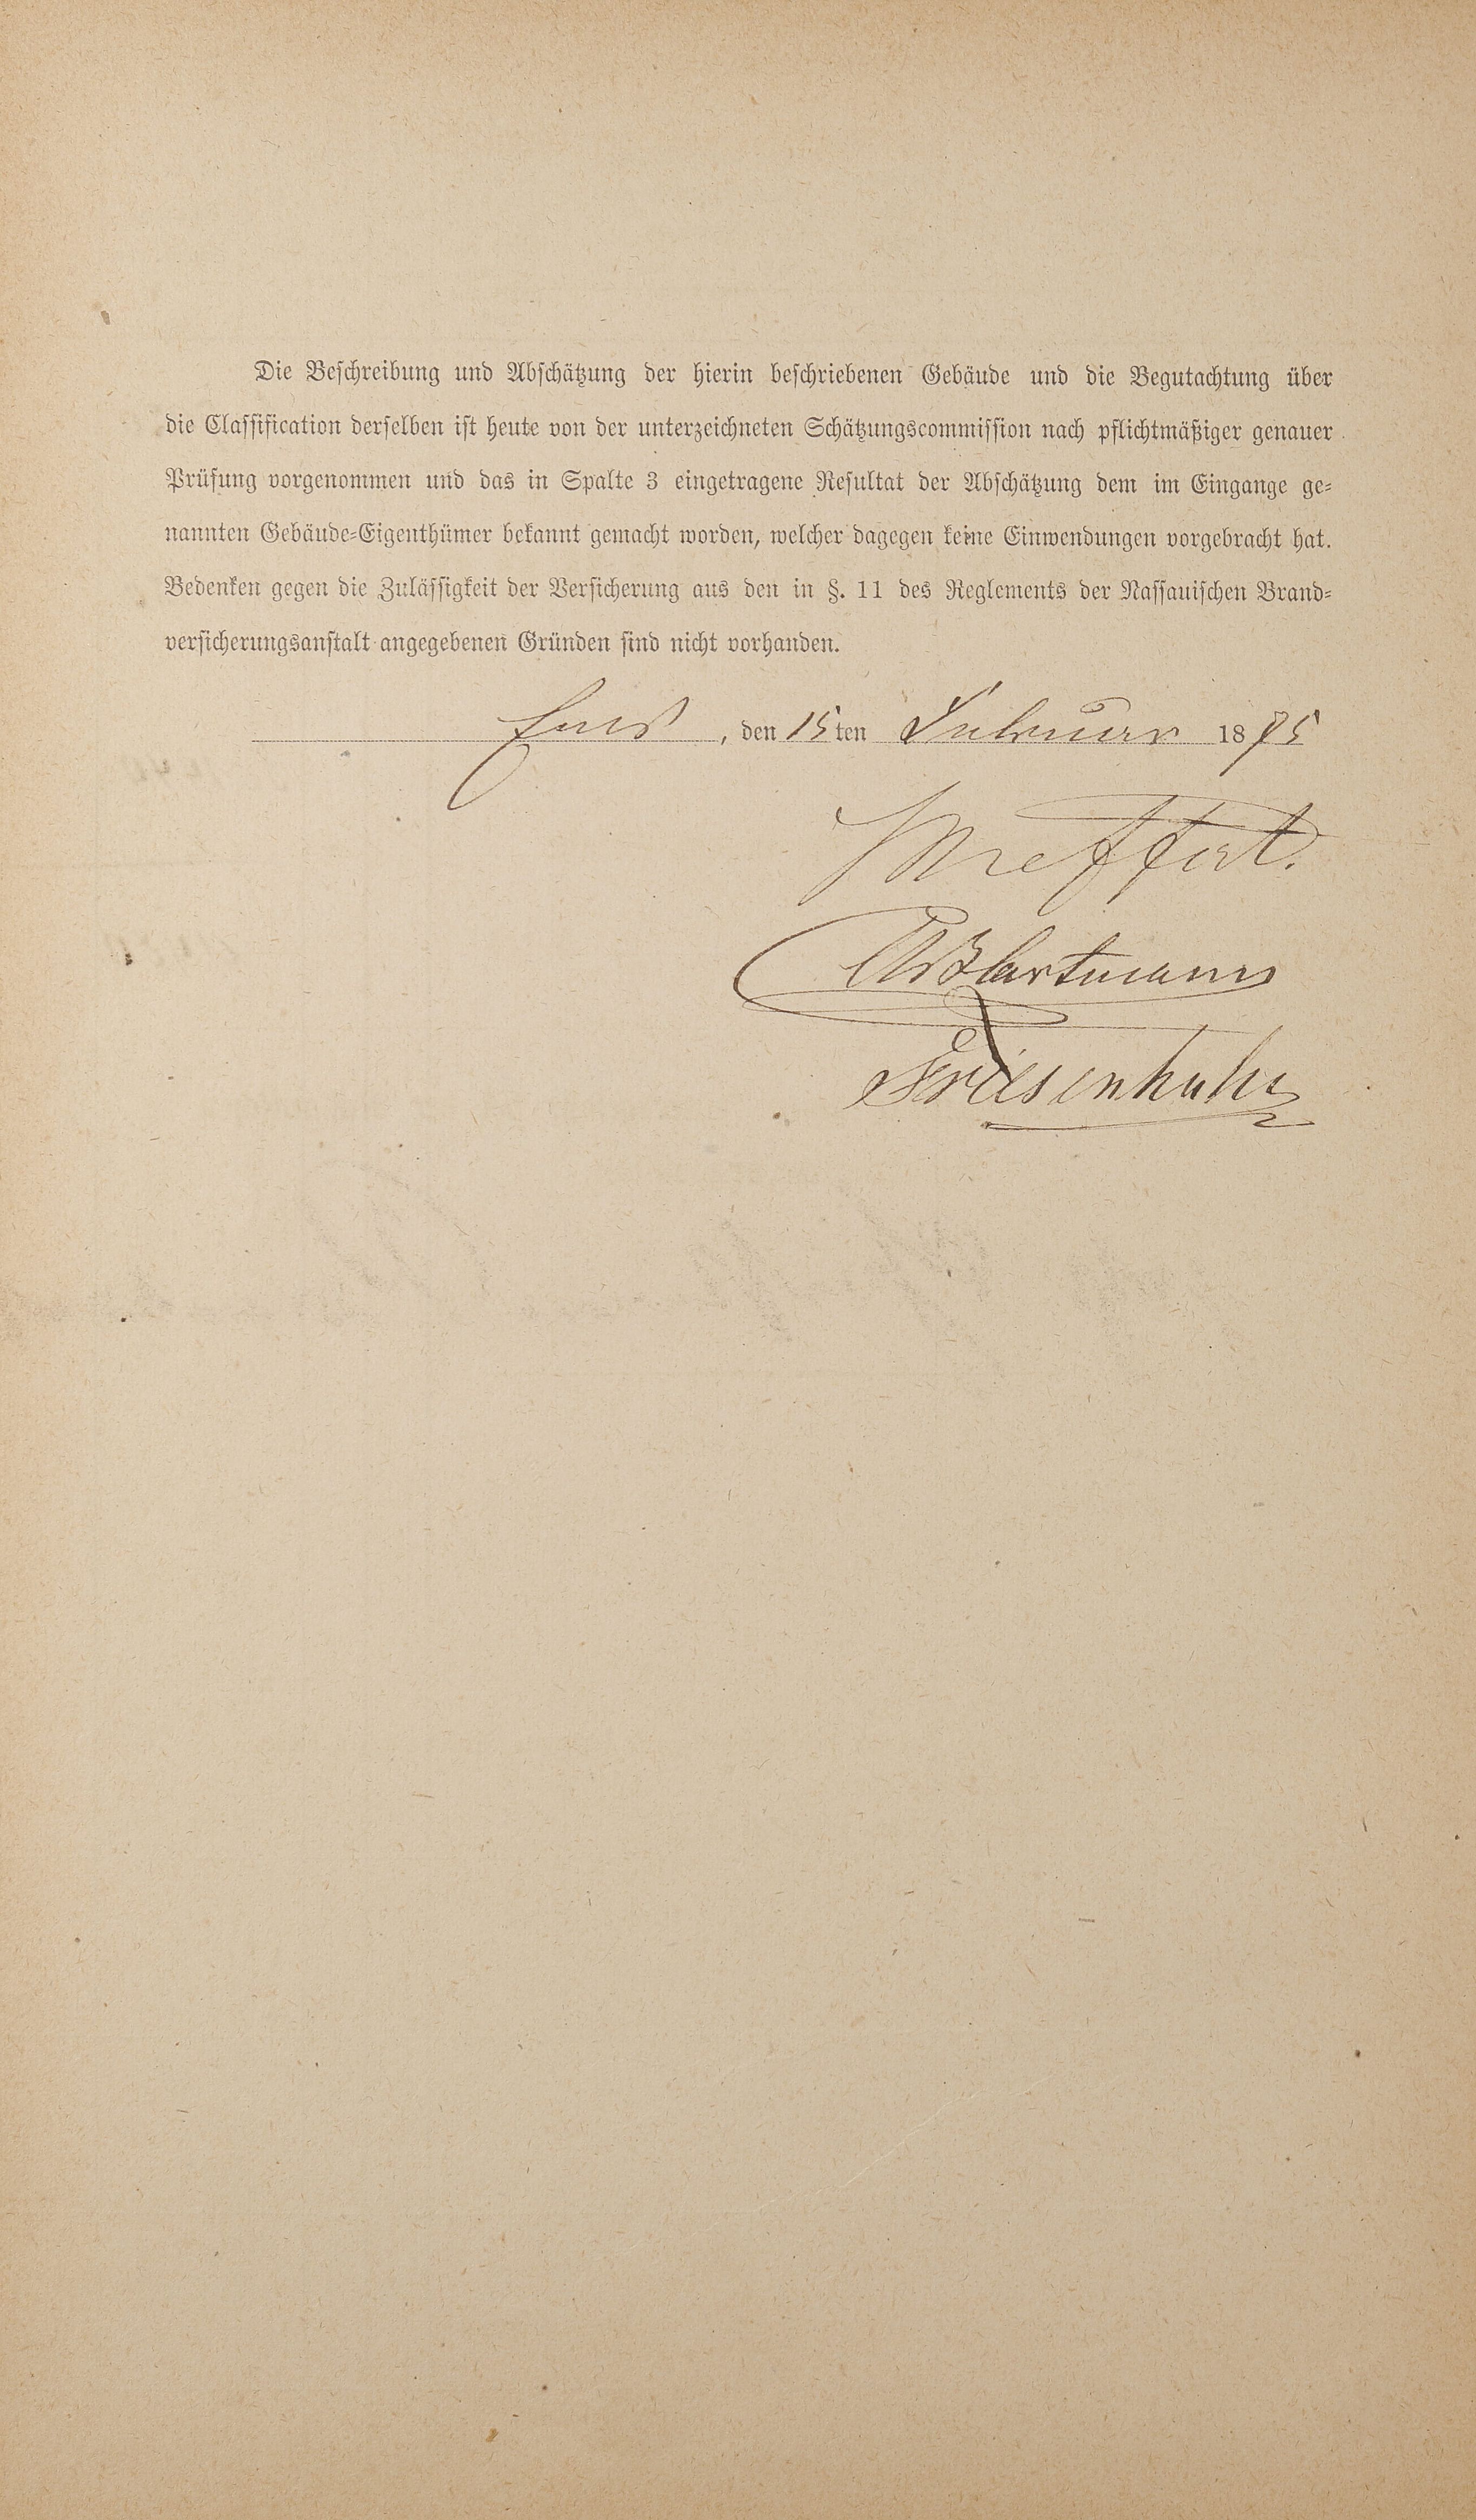 Die Beschreibung und Abschätzung der hierin beschriebenen Gebäude und die Begutachtung über
die Classification derselben ist heute von der unterzeichneten Schätzungscommission nach pflichtmäßiger genauer
Prüfung vorgenommen und das in Spalte 3 eingetragene Resultat der Abschätzung dem im Eingange ge-
nannten Gebäude-Eigenthümer bekannt gemacht worden, welcher dagegen keine Einwendungen vorgebracht hat.
Bedenken gegen die Zulässigkeit der Versicherung aus den in §. 11 des Reglements der Nassauischen Brand-
versicherungsanstalt angegebenen Gründen sind nicht vorhanden.
Ems, den 15ten Februar 18
Meffert.
Hartmann
Friesenhahn